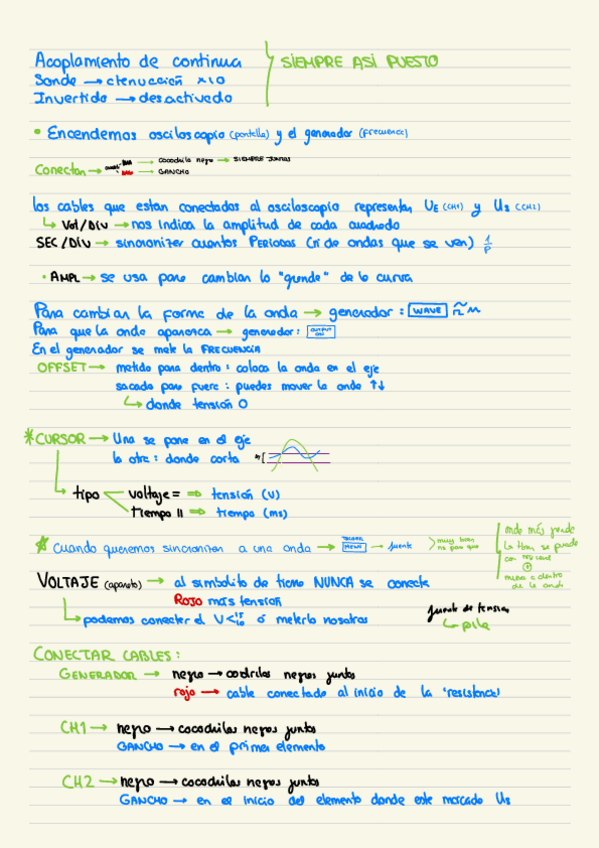 Acoplamiento de continua
SIEMPRE ASÍ PUESTO
Sonda → atenuación x10
Invertido → desactivado
• Encendemos osciloscopio (pantalla) y el generador (frecuencia)
Conectan →
→ cocodrilo negro → SIEMPRE JUNTOS
→ GANCHO
los cables que estan conectados al osciloscopio representan UE (CH1) y US (CH2)
↳ Vol/Div → nos indica la amplitud de cada cuadrado
SEC/DIV → sincronizar cuantos PERIODOS (nº de ondas que se ven) 1/P
• AMPL → se usa para cambiar lo "grande" de la curva
Para cambiar la forma de la onda → generador: WAVE
Para que la onda aparezca → generador: OUTPUT
En el generador se mete la FRECUENCIA
OFFSET → metido para dentro: coloca la onda en el eje
sacado para fuera: puedes mover la onda ↑↓
↳ donde tensión 0
* CURSOR → Una se pone en el eje
la otra: donde corta
↳ tipo
voltaje = ⇒ tensión (V)
tiempo || ⇒ tiempo (ms)
* Cuando queremos sincronizar a una onda → MENU → fuente
muy bien
no para que
VOLTAJE (aparato) → al simbolito de tierra NUNCA se conecta
ROJO más tensión
↳ podemos conectar el V< ó meterlo nosotros
fuente de tensión
↳ pila
CONECTAR CABLES:
GENERADOR → negro → cocdrilos negros juntos
rojo → cable conectado al inicio de la "resistencia"
CH1 → negro → cocochilos negros juntos
GANCHO → en el primer elemento
CH2 → negro → cocochilos negros juntos
GANCHO → en el inicio del elemento donde este marcado US